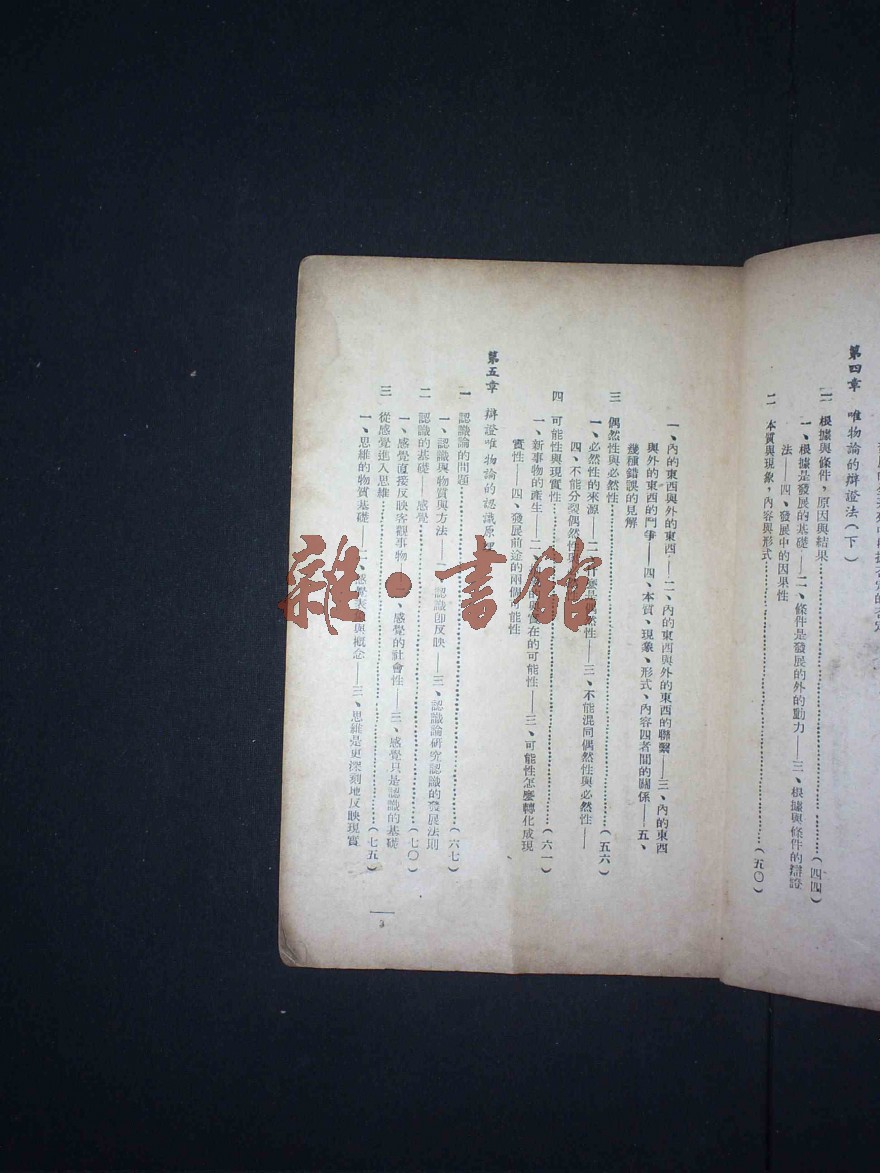 第四章 唯物論的辯證法(下)
一 根據與條件,原因與結果………(四四)
一、根據是發展的基礎——二、條件是發展的外的動力——三、根據與條件的辯證
法——四、發展中的因果性
二 本質與現象,內容與形式………(五〇)
一、內的東西與外的東西——二、內的東西與外的東西的聯繫——三、內的東西
與外的東西的鬥爭——四、本質、現象、形式、內容四者間的關係——五、
幾種錯誤的見解
三 偶然性與必然性………(五六)
一、必然性的來源——二、什麼是偶然性——三、不能混同偶然性與必然性——
四、不能分裂偶然性與
四 可能性與現實性………(六一)
一、新事物的產生——二、與實在的可能性——三、可能性怎麼轉化成現
實性——四、發展前途的兩個可能性
第五章 辯證唯物論的認識原理
一 認識論的問題………(六七)
一、認識與物質與方法——二、認識即反映——三、認識論研究認識的發展法則
二 認識的基礎——感覺………(七〇)
一、感覺直接反映客觀事物——二、感覺的社會性——三、感覺只是認識的基礎
三 從感覺進入思維………(七五)
一、思維的物質基礎——二、感覺表與概念——三、思維是更深刻地反映現實
3
雜·書館